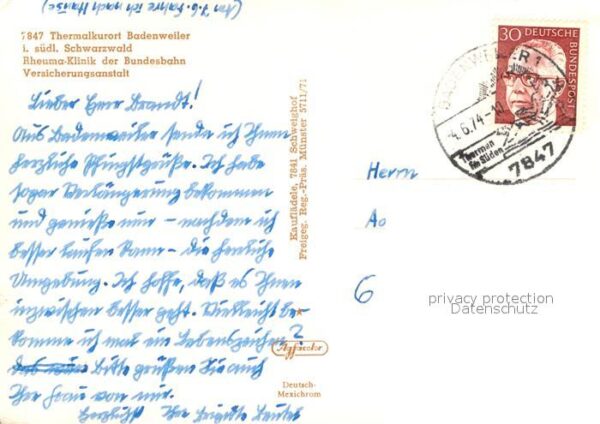 (Am 7.6. fahre ich nach Hause)
7847 Thermalkurort Badenweiler
i. südl. Schwarzwald
Rheuma-Klinik der Bundesbahn
Versicherungsanstalt
Lieber Herr Brandt!
Aus Badenweiler sende ich Ihnen
herzliche Pfingstgrüße. Ich habe
sogar Verlängerung bekommen
und genieße nun - nachdem ich
besser laufen kann - die herrliche
Umgebung. Ich hoffe, daß es Ihnen
inzwischen besser geht. Vielleicht be-
komme ich mal ein Lebenszeichen?
bitte grüßen Sie auch
Ihre Frau von mir.
Herzlichst Ihre Brigitte
Kauflädele, 7841 Schweighof
Freigeg. Reg.-Präs. Münster 5711/71
Agfacolor
Deutsch-
Mexichrom
30 DEUTSCHE BUNDESPOST
BADENWEILER 1
4.6.74-10
Thermen
im Süden
7847
Herrn
Ao
6
privacy protection
Datenschutz